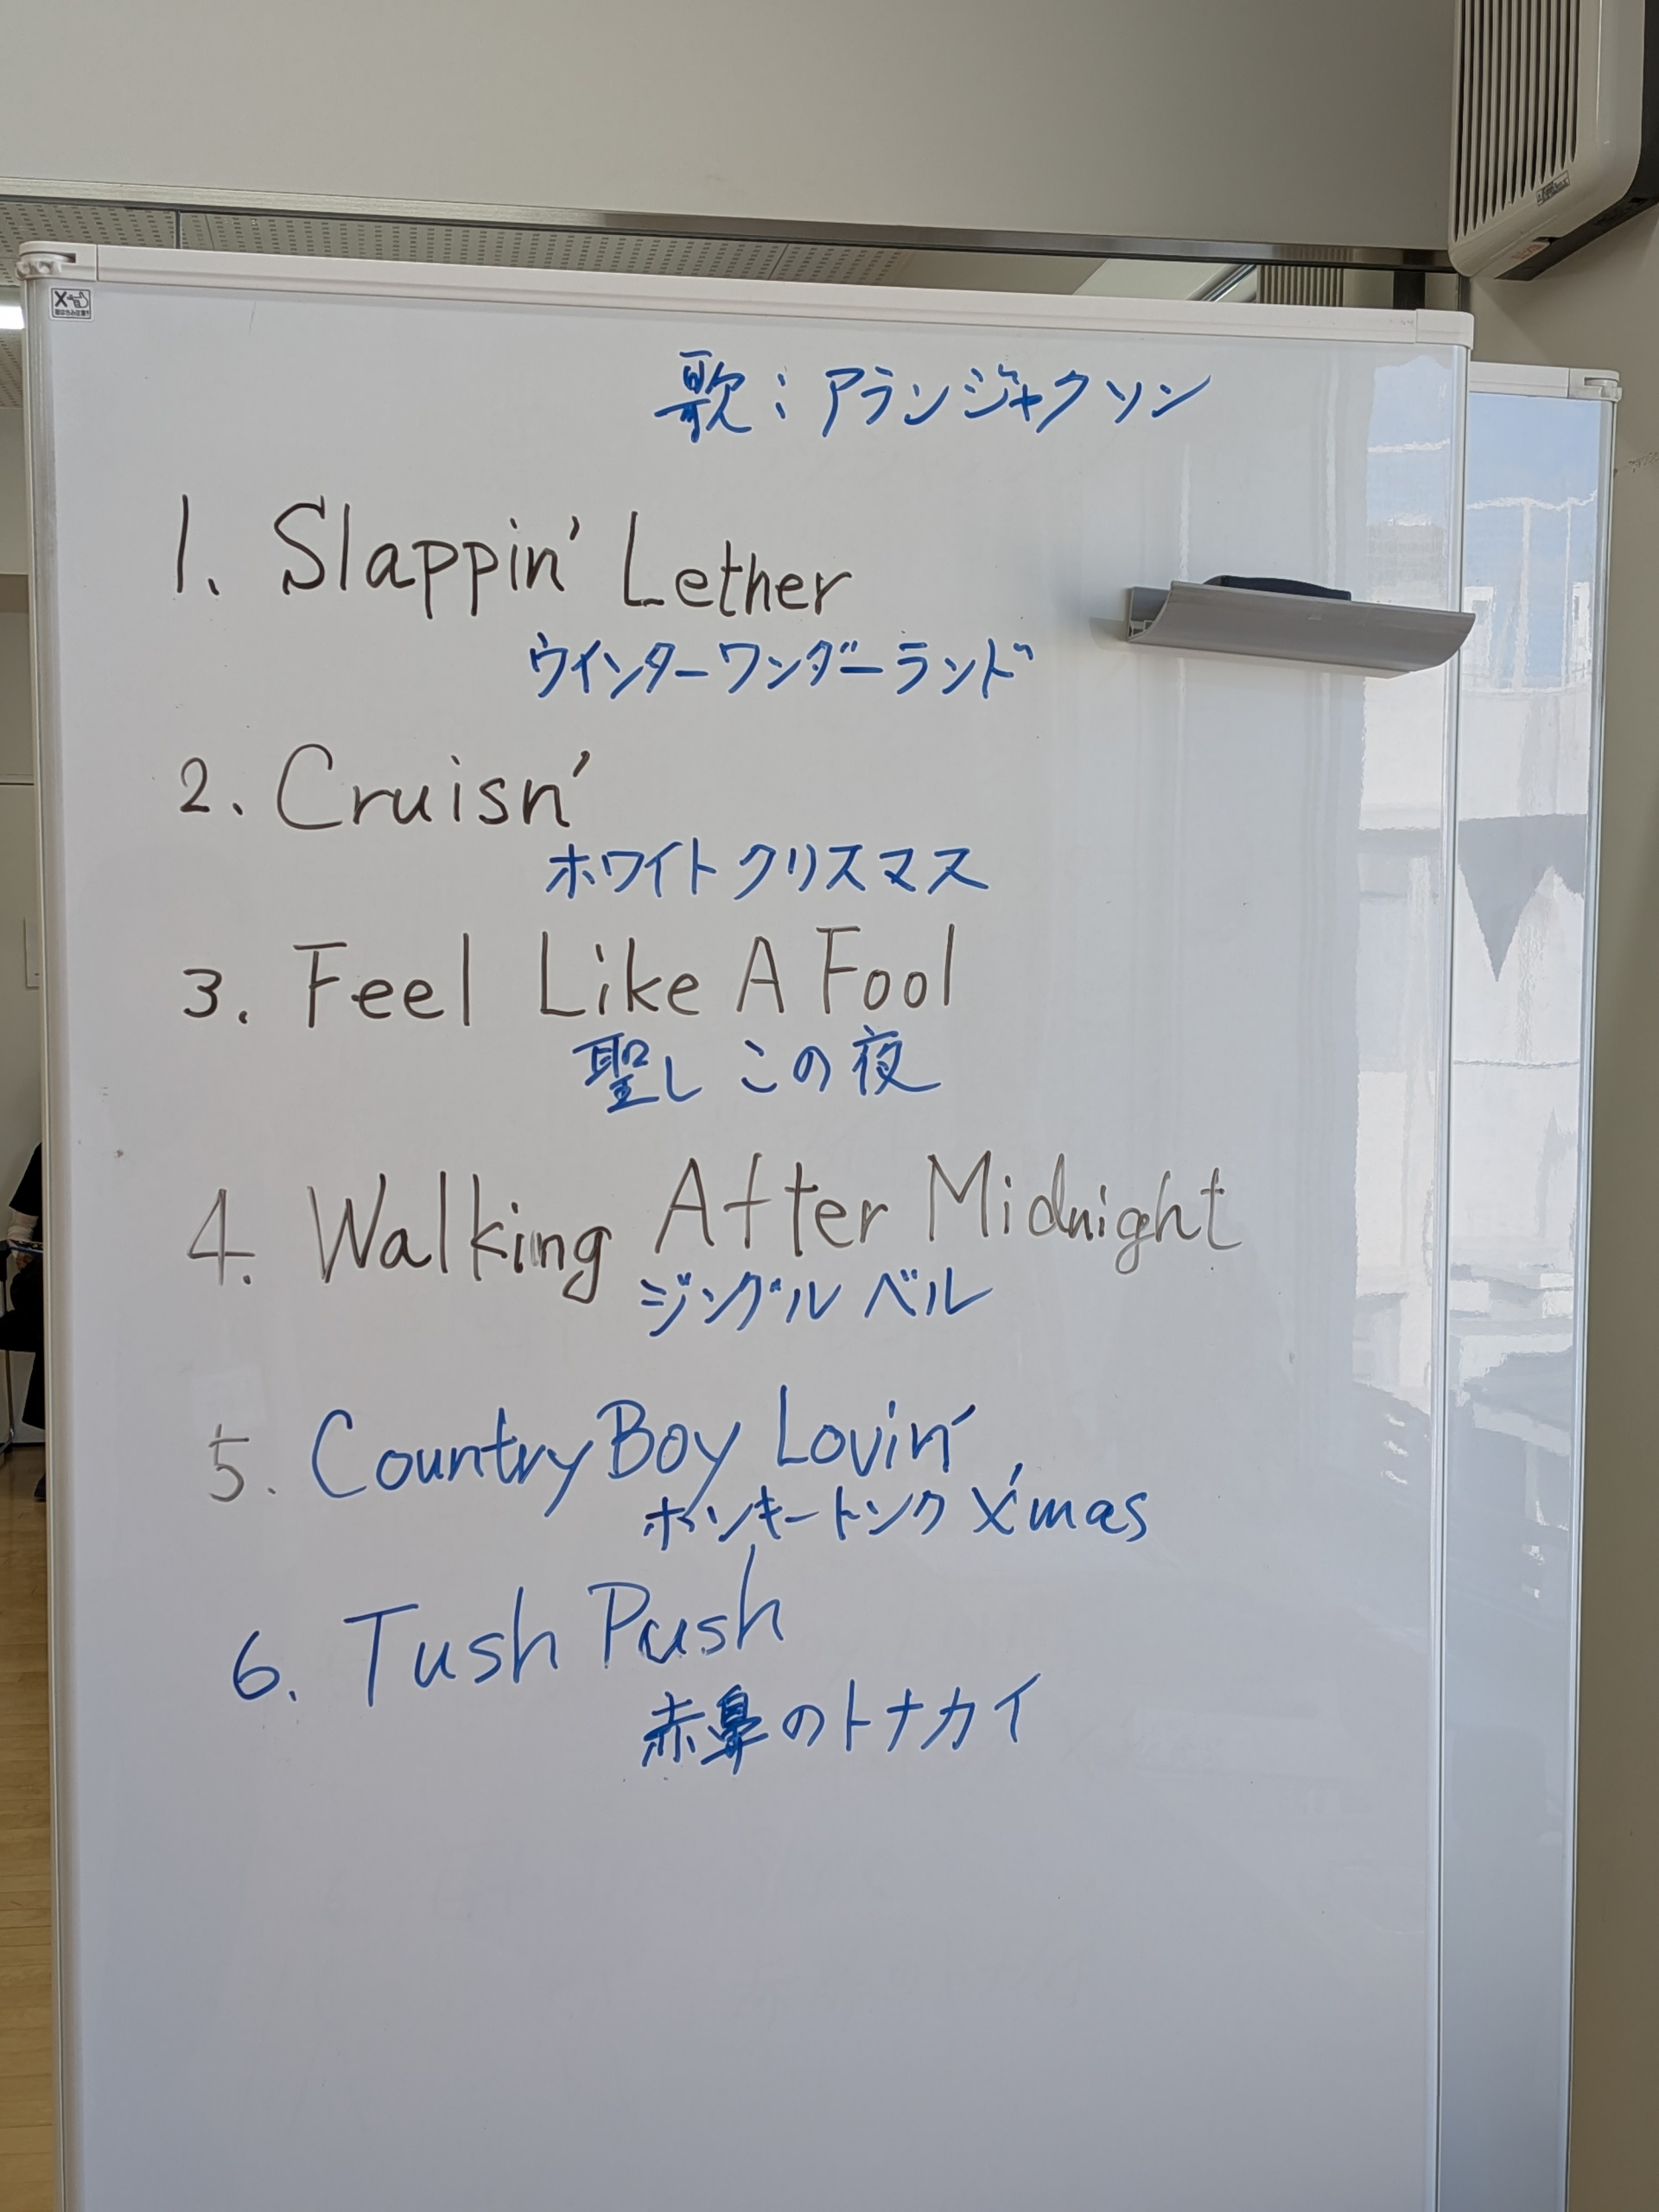 歌：アランジャクソン
1. Slappin' Lether
ウインターワンダーランド
2. Cruisn'
ホワイトクリスマス
3. Feel Like A Fool
聖し この夜
4. Walking After Midnight
ジングル ベル
5. Country Boy Lovin'
ホンキートンク X'mas
6. Tush Push
赤鼻のトナカイ